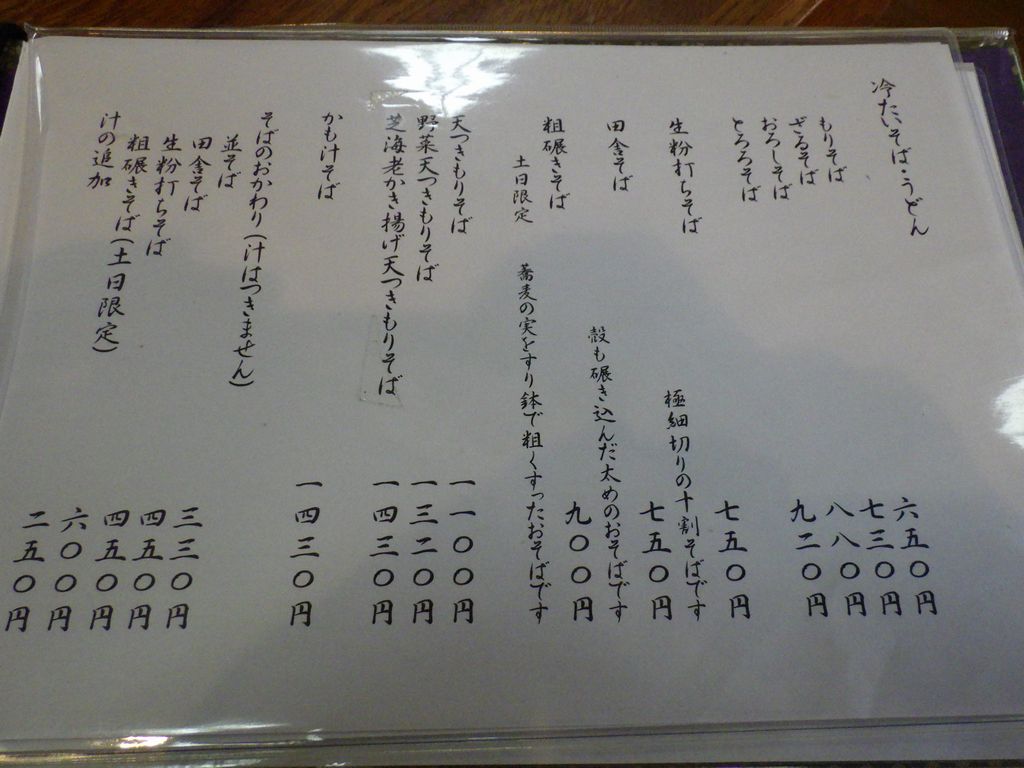 冷たいそば・うどん
もりそば 六五〇円
ざるそば 七三〇円
おろしそば 八八〇円
とろろそば 九二〇円
生粉打ちそば 七五〇円
極細切りの十割そばです
田舎そば 七五〇円
殻も碾き込んだ太めのおそばです
粗碾きそば 九〇〇円
土日限定 蕎麦の実をすり鉢で粗くすったおそばです
天つきもりそば 一一〇〇円
野菜天つきもりそば 一三二〇円
芝海老かき揚げ天つきもりそば 一四三〇円
かも汁そば 一四三〇円
そばのおかわり(汁はつきません)
並そば 三三〇円
田舎そば 四五〇円
生粉打ちそば 四五〇円
粗碾きそば(土日限定) 六〇〇円
汁の追加 二五〇円